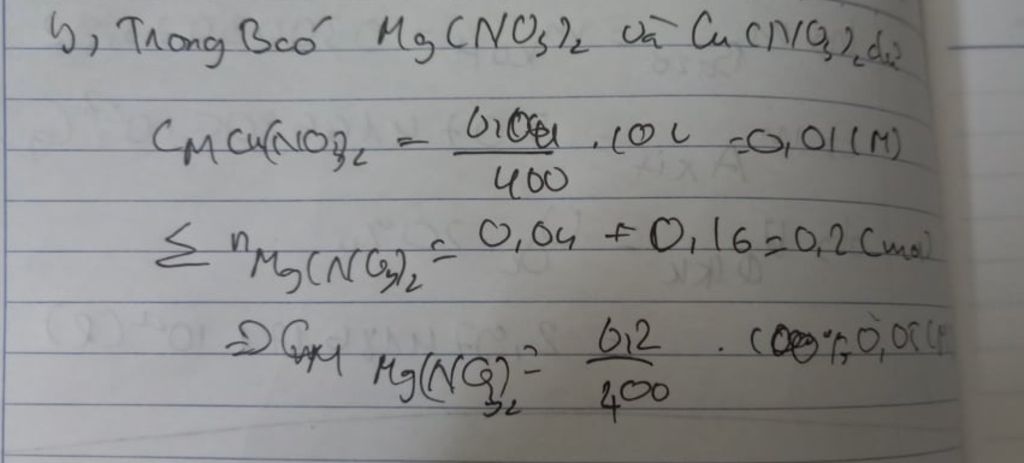 b, Trong B có Mg(NO3)2 và Cu(NO3)2 dư
CM Cu(NO3)2 = 0,004 / 400 . 100 = 0,01 (M)
Σ n Mg(NO3)2 = 0,04 + 0,16 = 0,2 (mol)
=> CM Mg(NO3)2 = 0,2 / 400 .